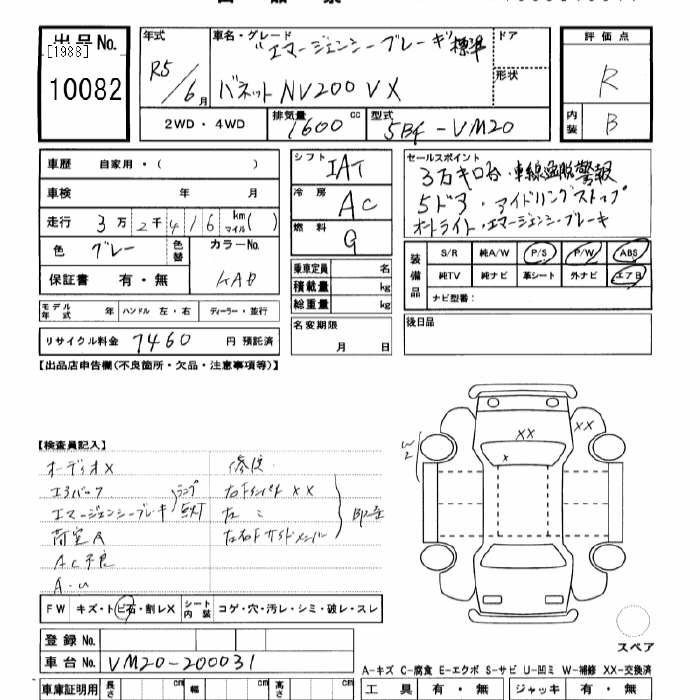 出品No.
[1988]
10082
年式
R5/6月
車名・グレード
"エマージェンシーブレーキ"標準
バネットNV200 VX
ドア
形状
2WD・4WD
排気量
1600 cc
型式
5BF-VM20
評価点
R
内装
B
車歴 自家用・( )
車検 年 月
走行 3万2千416 km マイル( )
色 グレー 色替 カラーNo.
KAD
保証書 有・無
シフト IAT
冷房 AC
燃料 G
乗車定員 名
積載量 kg
総重量 kg
セールスポイント
3万キロ台・車線逸脱警報
5ドア・アイドリングストップ
オートライト・エマージェンシーブレーキ
装備品
S/R 純A/W P/S P/W ABS
純TV 純ナビ 革シート 外ナビ エアB
ナビ型番:
モデル年式 年 ハンドル 左・右 ディーラー・並行
リサイクル料金 7460 円 預託済
名変期限
月 日
後日品
【出品店申告欄(不良箇所・欠品・注意事項等)】
【検査員記入】
オーディオX
エアバック
エマージェンシーブレーキ
ランプ点灯
荷室A
AC不良
修復
右 XX
左 〃
W2
XX
XX
x
FW キズ・トビ石・割レX シート内装 コゲ・穴・汚レ・シミ・破レ・スレ
登録No.
車台No. VM20-200031
車庫証明用 長さ cm 幅 cm 高さ cm
スペア
A-キズ C-腐食 E-エクボ S-サビ U-凹ミ W-補修 XX-交換済
工具 有・無 ジャッキ 有・無